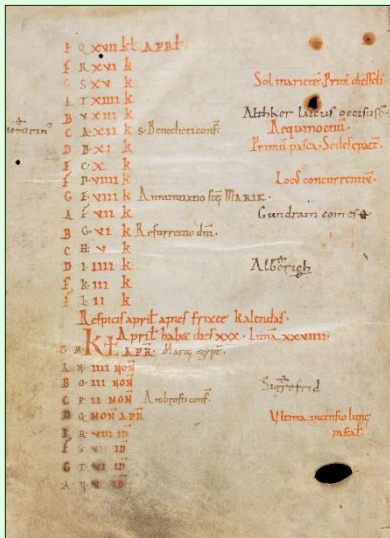 F Q XVII kł APRł
F R XVI k
G S XV k Sol in ariete. Primi
A T XIIII k
B V XIII k occisus
C A XII k S. Benedicti conf. Aequinoctiu
D B XI k Primu pasca. Sedes epact
E C X k
F D VIIII k Locus concurrentiu
G E VIII k Annuntiatio scę MARIE
A F VII k Gundram comes
B G VI k Resurrectio dni
C H V k
D I IIII k Alberich
E K III k
F L II k
Respicis april aries frixee kalendas
Aprił habet dies XXX. Luna XXVIIII
G M Kł APR Marie egypt
A N IIII NON
B O III NON Sigefrid
C P II NON Ambrosii conf.
D Q NON APR Ultima incensio lune
pascał
E R VIII ID
F S VII ID
G T VI ID
A V V ID